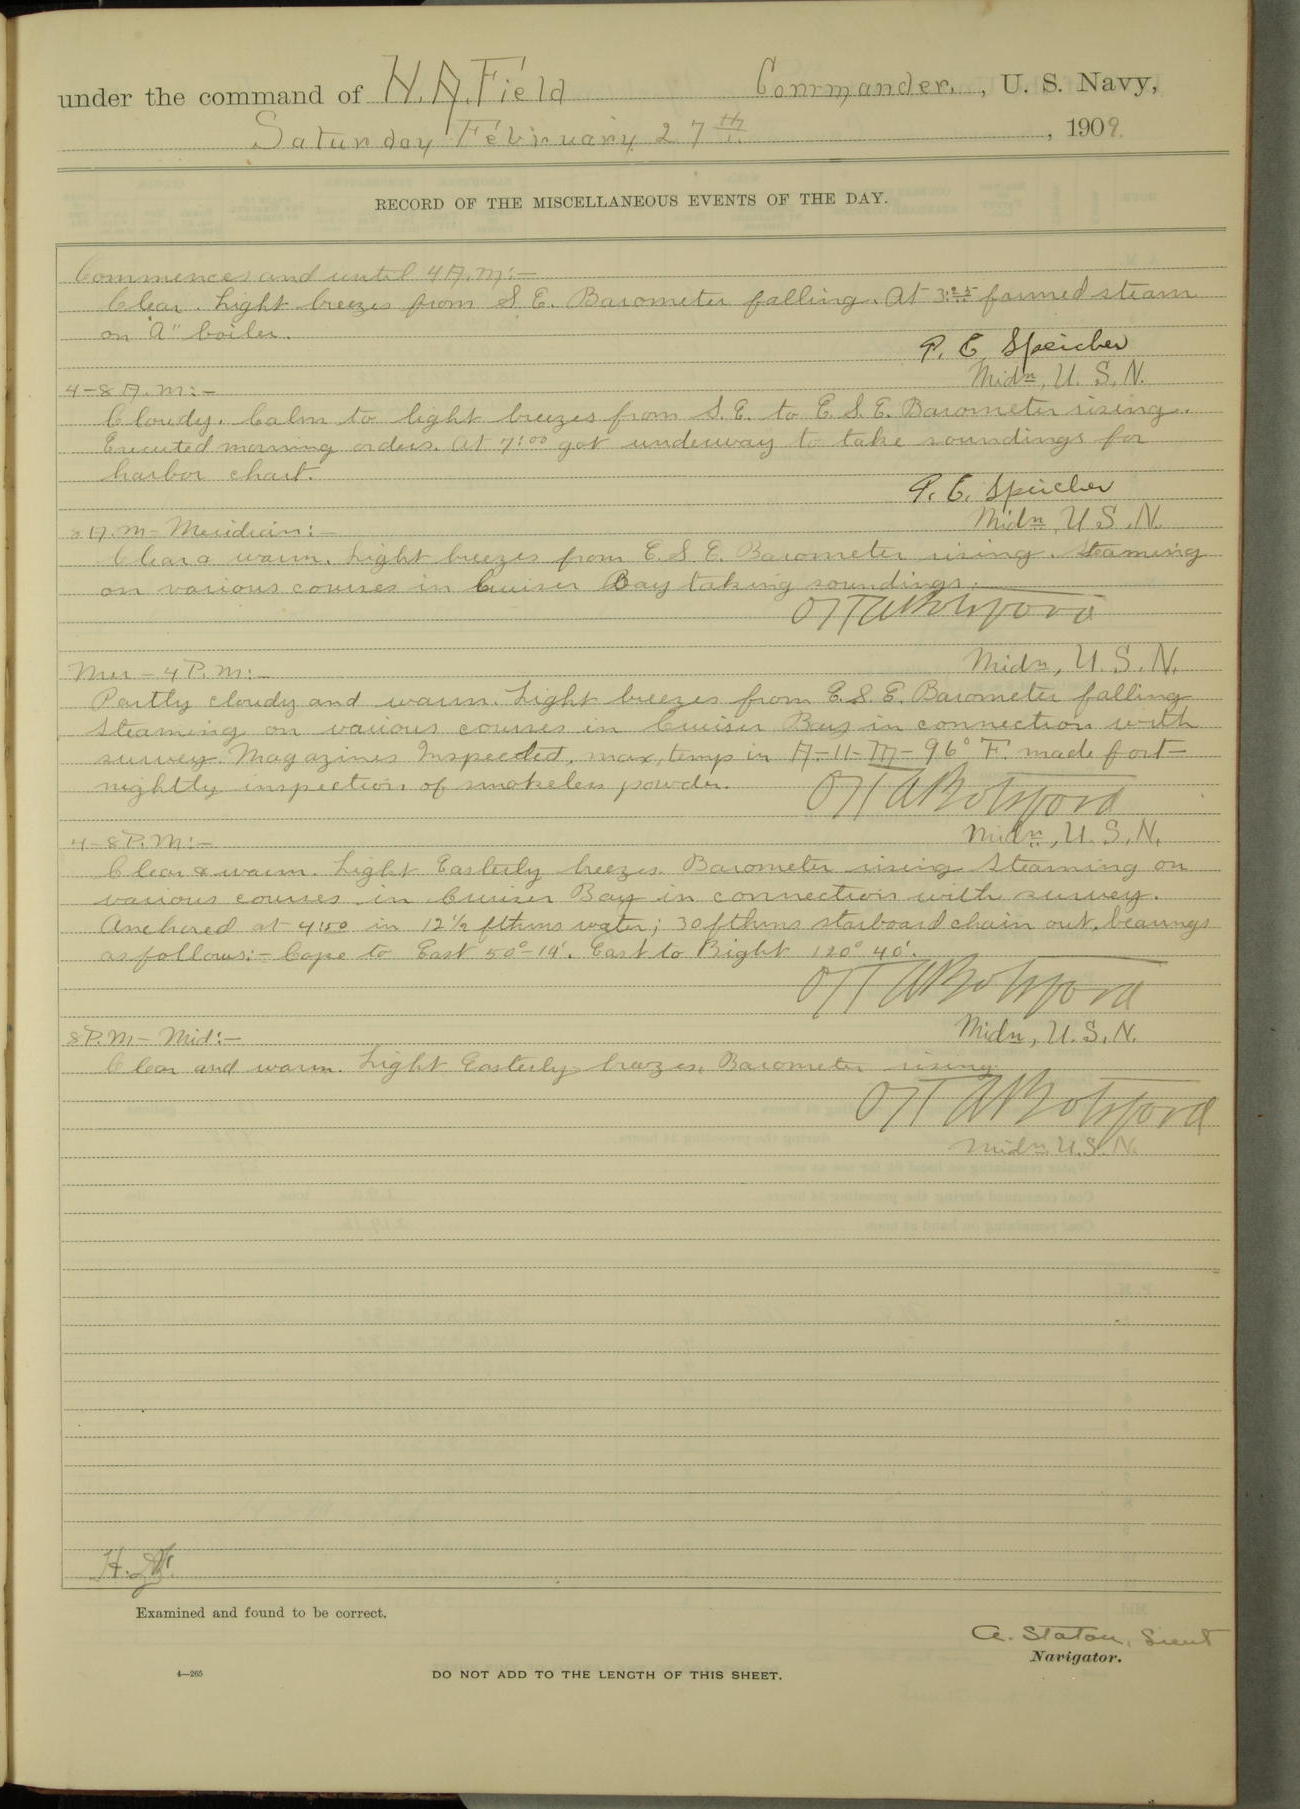 under the command of H. A. Field Commander. , U. S. Navy,
Saturday February 27th , 1909.
RECORD OF THE MISCELLANEOUS EVENTS OF THE DAY.
Commences and until 4 A.M:—
Clear. Light breezes from S. E. Barometer falling. At 3:25 formed steam
on "A" boiler.
P. E. Speicher
Midn, U. S. N.
4–8 A.M:—
Cloudy. Calm to light breezes from S.E. to E.S.E. Barometer rising.
Executed morning orders. At 7:00 got underway to take soundings for
harbor chart.
P. E. Speicher
Midn U S. N.
8 A.M– Meridian:
Clear & warm. Light breezes from E.S.E. Barometer rising. Steaming
on various courses in Cruiser Bay taking soundings.
Botsford
Midn, U. S. N.
Mer – 4 P.M:—
Partly cloudy and warm. Light breezes from E.S.E. Barometer falling
Steaming on various courses in Cruiser Bay in connection with
survey. Magazines Inspected, max, temp in A-11-M– 96° F. made fort–
nightly inspection of smokeless powder.
Botsford
Midn, U. S. N.
4–8 P.M:—
Clear & warm. Light Easterly breezes. Barometer rising Steaming on
various courses in Cruiser Bay in connection with survey.
Anchored at 4:50 in 12½ fthms water; 30 fthms starboard chain out, bearings
as follows:– Cape to East 50°–14'. East to Bight 120° 40'.
Botsford
Midn, U. S. N.
8 P.M – Mid:—
Clear and warm. Light Easterly breezes. Barometer rising
Botsford
Midn U. S. N.
H.
Examined and found to be correct.
A. Staton, Lieut
Navigator.
4—265
DO NOT ADD TO THE LENGTH OF THIS SHEET.